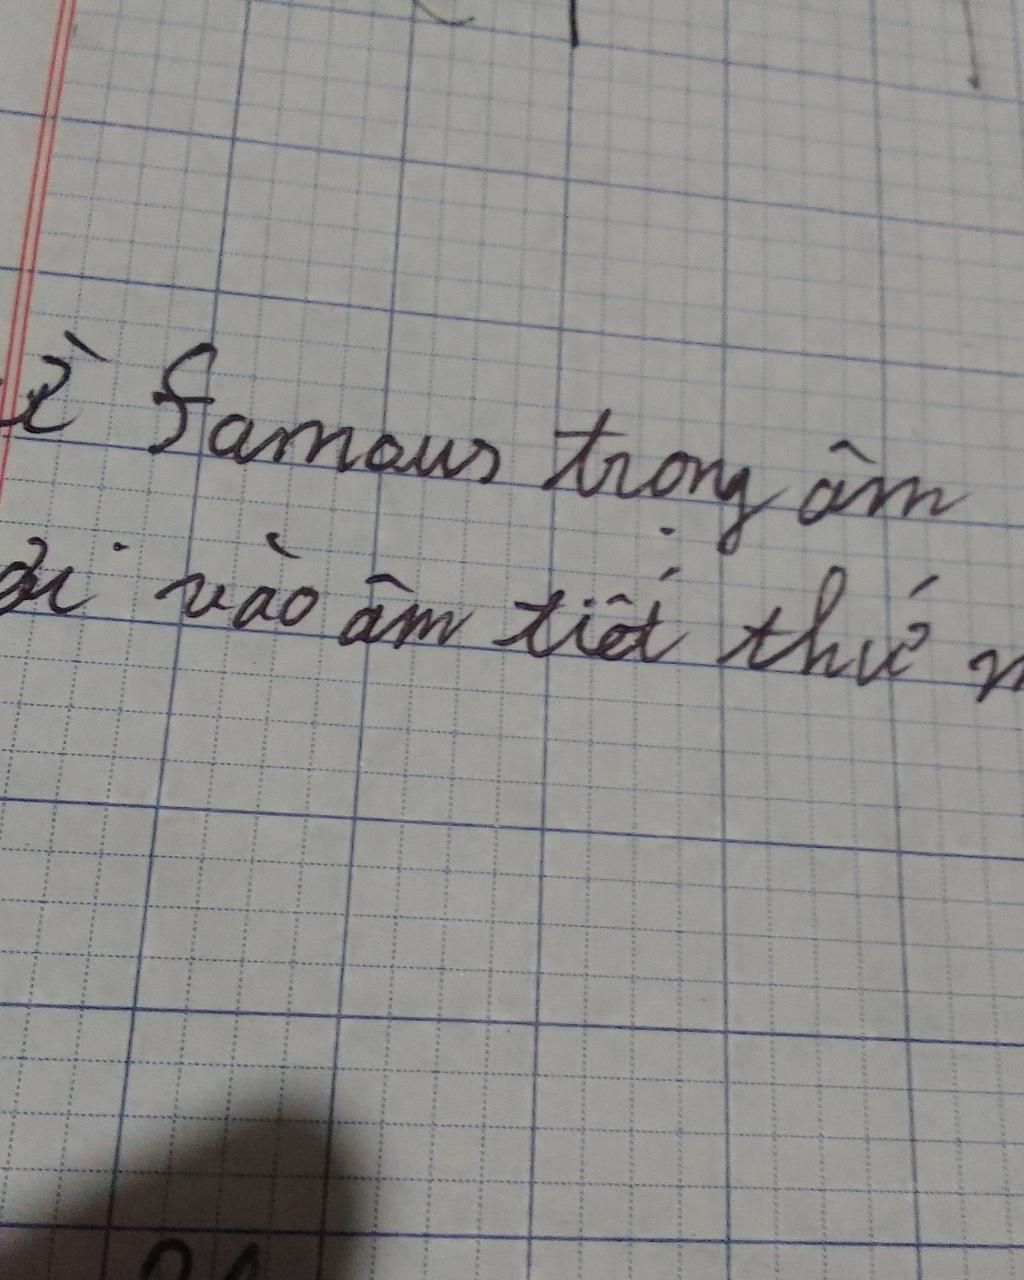 famous trọng âm
vào âm tiết thứ